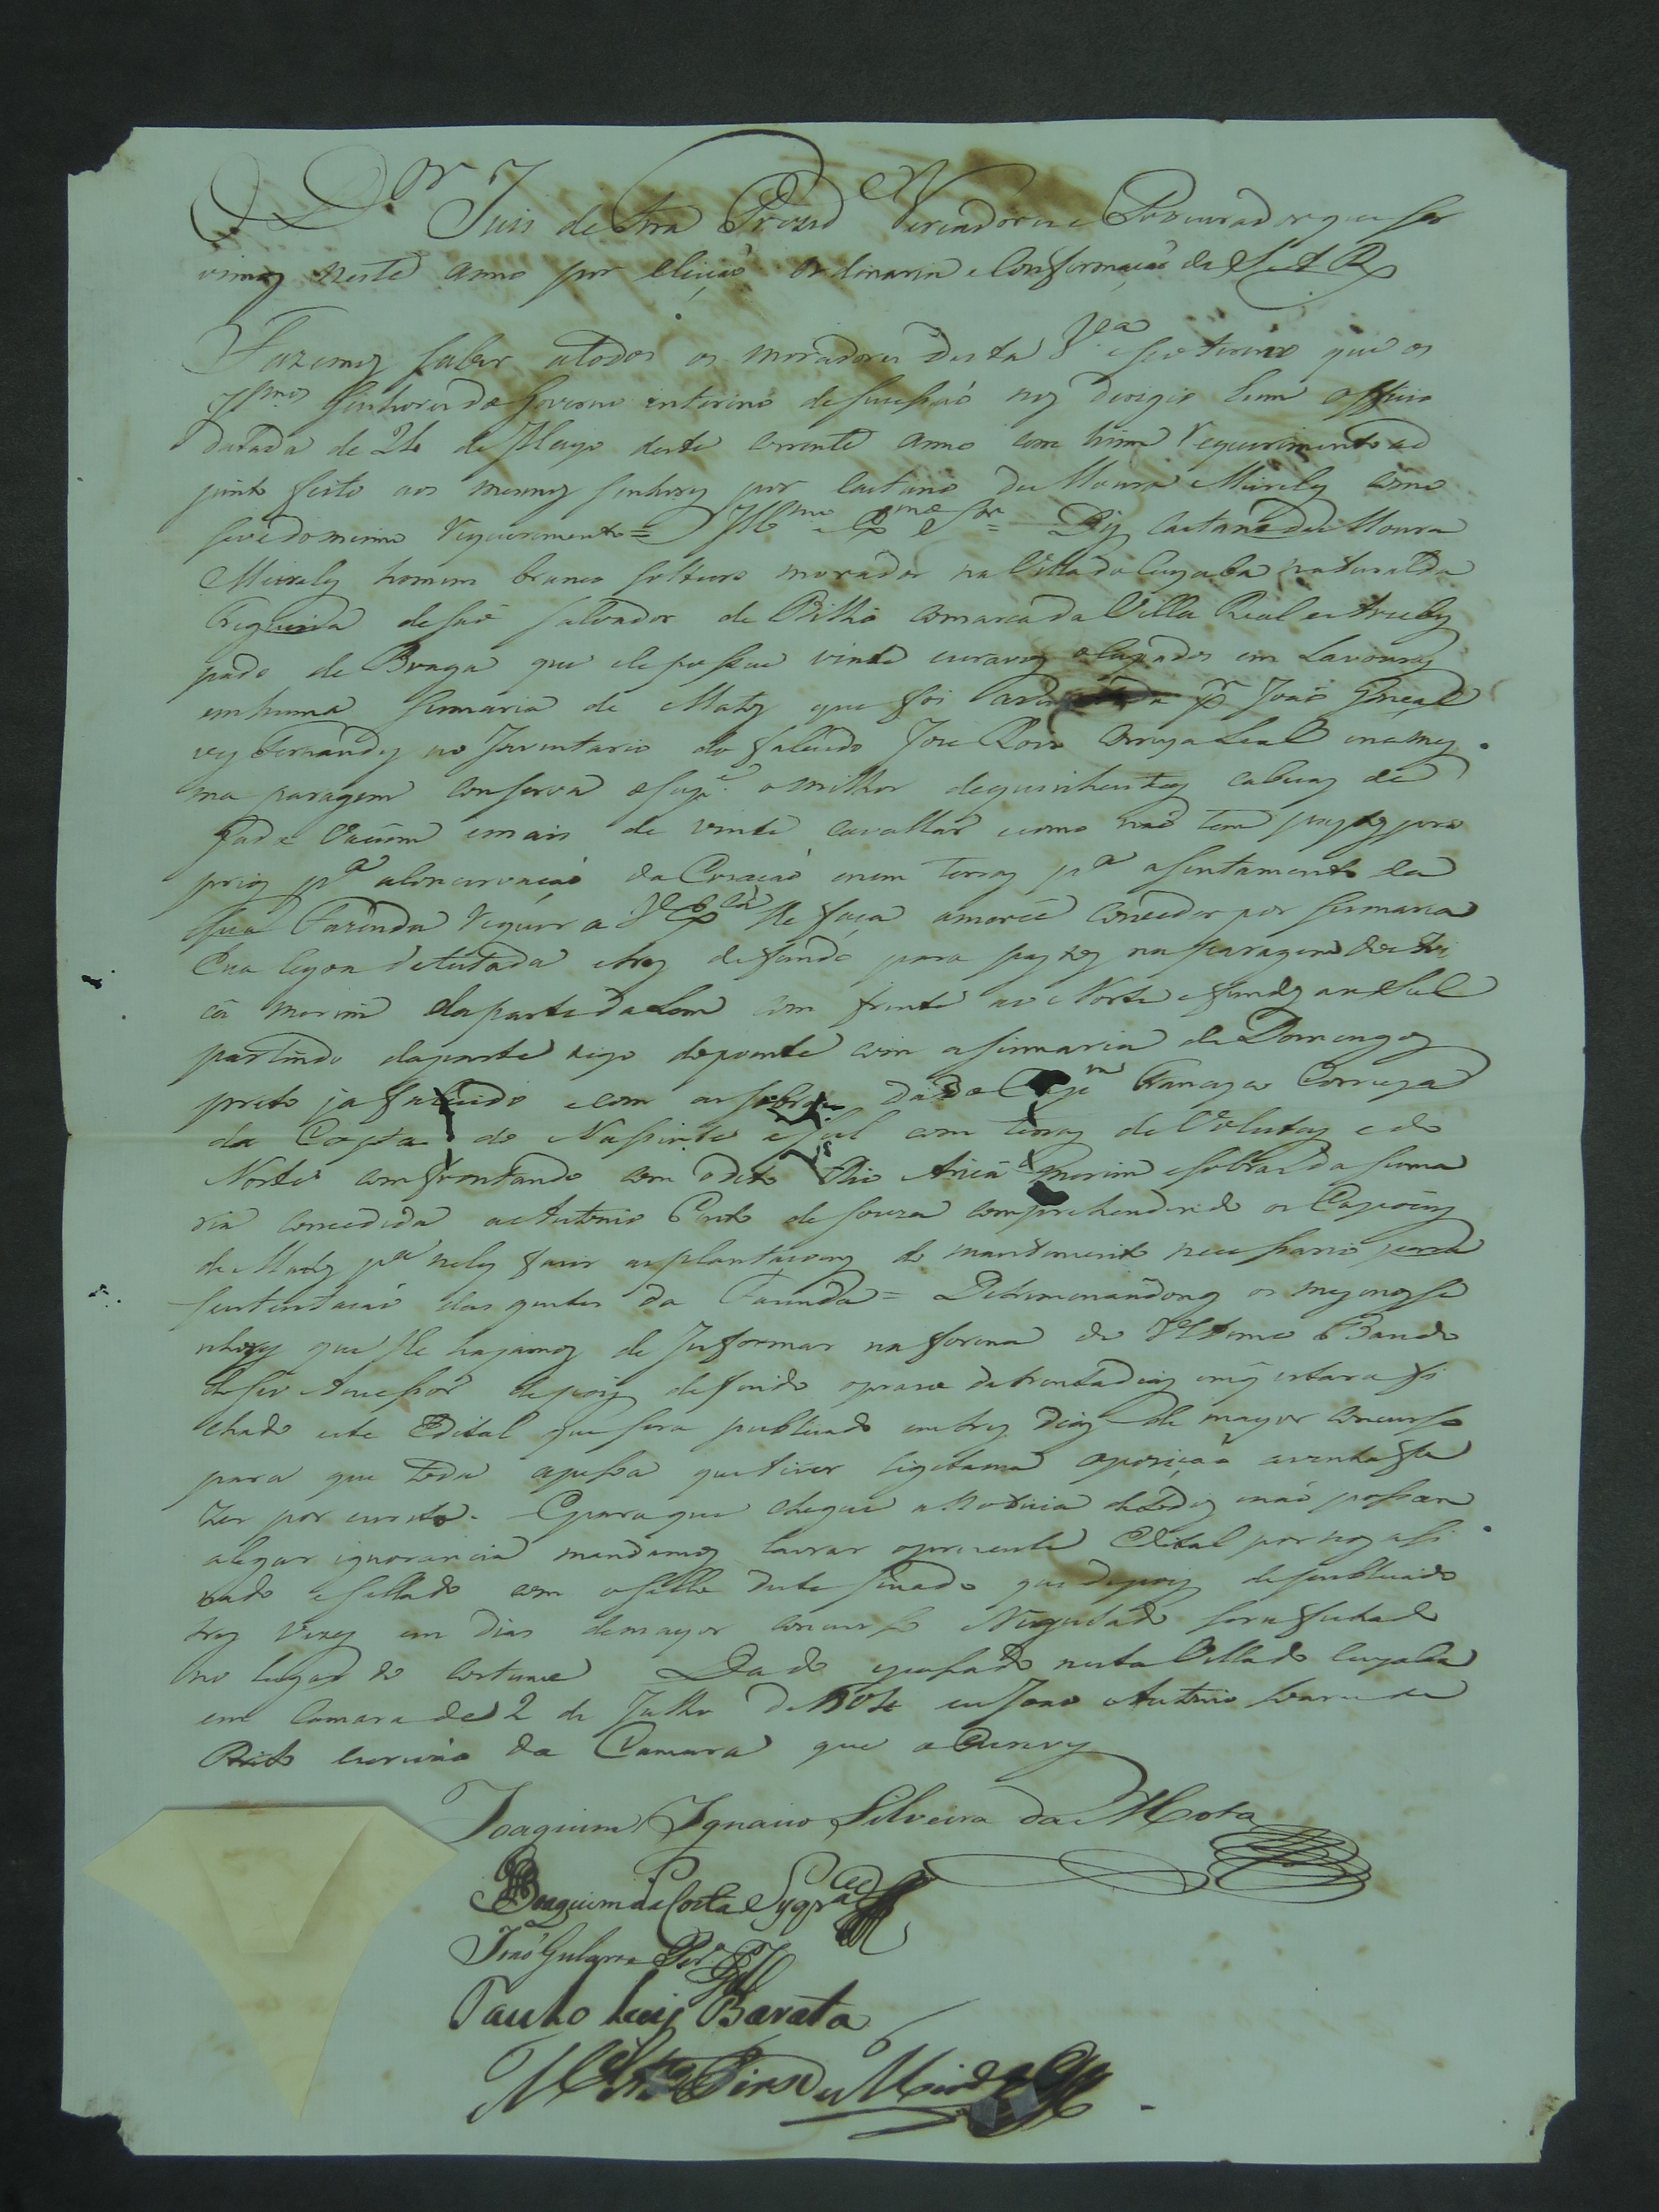 O D.or Juis de Fra Prezid.e Vereadores e Procurador que ser
vimos neste anno por eleiçaõ ordinaria e Confirmaçaõ de S. A. R.
Fazemos saber atodos os moradores desta V.a e seo termo que os
Ill.mos Senhores do Governo interino desucessaõ nos dirigio hum officio
datada de 24 de Mayo deste corrente anno com hum requerimento ad
junto feito aos mesmos senhores por Caetano de Moura Meireles como
se ve do mesmo requerimento = Ill.mos e Ex.mos Snr.es = Diz Caetano de Moura
Meireles homem branco solteiro morador na Villa do Cuyaba natural da
Freguezia de saõ salvador de comarca da Villa Real e Arcebis
pado de Braga que ele possue vinte escravos ocupados em Lavouras
em huma sesmaria de Matos que foi p.r Joaõ Gonçal
ves Fernandes no Inventario do falecido Joze Correya Leal e na mes
ma paragem conserva o milhor de quinhentas cabeças de
gado vacum e mais de vinte cavallar e como naõ tem pastos pro
prios p.a aConcervaçaõ da Criaçaõ e nem terras p.a asentamento da
sua Fazenda requer a V. Ex.cia lhe faça amercê conceder por sesmaria
hua legoa detestada e tres defundo para pastos na paragem do Ari
cá merim da parte dalem com frente ao Norte e fundos ao Sul
partindo da parte do poente com asismaria de Domingos
preto ja falecido e com as sobras da do Cap.m Correya
da Costa do Nascente e Sul com terras devolutas e do
Norte comfrontando com odito Rio Aricá merim e sobras da sesma
ria concedida a Antonio Preto de souza comprehendendo os Capões
de Matos p.a neles fazer as plantaçoens de mantimento necessario para
sustentaçaõ das gentes da Fazenda = Determinandonos os mesmos se
nhores que lhe hajamos de Informar na forma do Ultimo Bando
de seo Antecessor depois defindo oprazo detrinta dias em q estara afi
chado este Edital que sera publicado em tres dias de mayor concurso
para que toda apessoa que tiver ligitima oposiçaõ avenha fa
zer por escrito. E para que chegue a Noticia de todos e naõ possam
alegar ignorancia mandamos lavrar oprezente Edital por nos asi
nado e sellado com osello deste senado que depois de publicado
tres vezes em dias demayor concurso e Registado sera fichado
no lugar do costume Dado e passado nesta Villa do Cuyaba
em Camara de 2 de Julho de 1804 eu Joaõ Antonio
escrivaõ da Camara que o Escrevy
Joaquim Ignacio Silveira da Mota
Joaquim da Costa Syqr.a
Joaõ
Paulo Luis Barata
Pires de